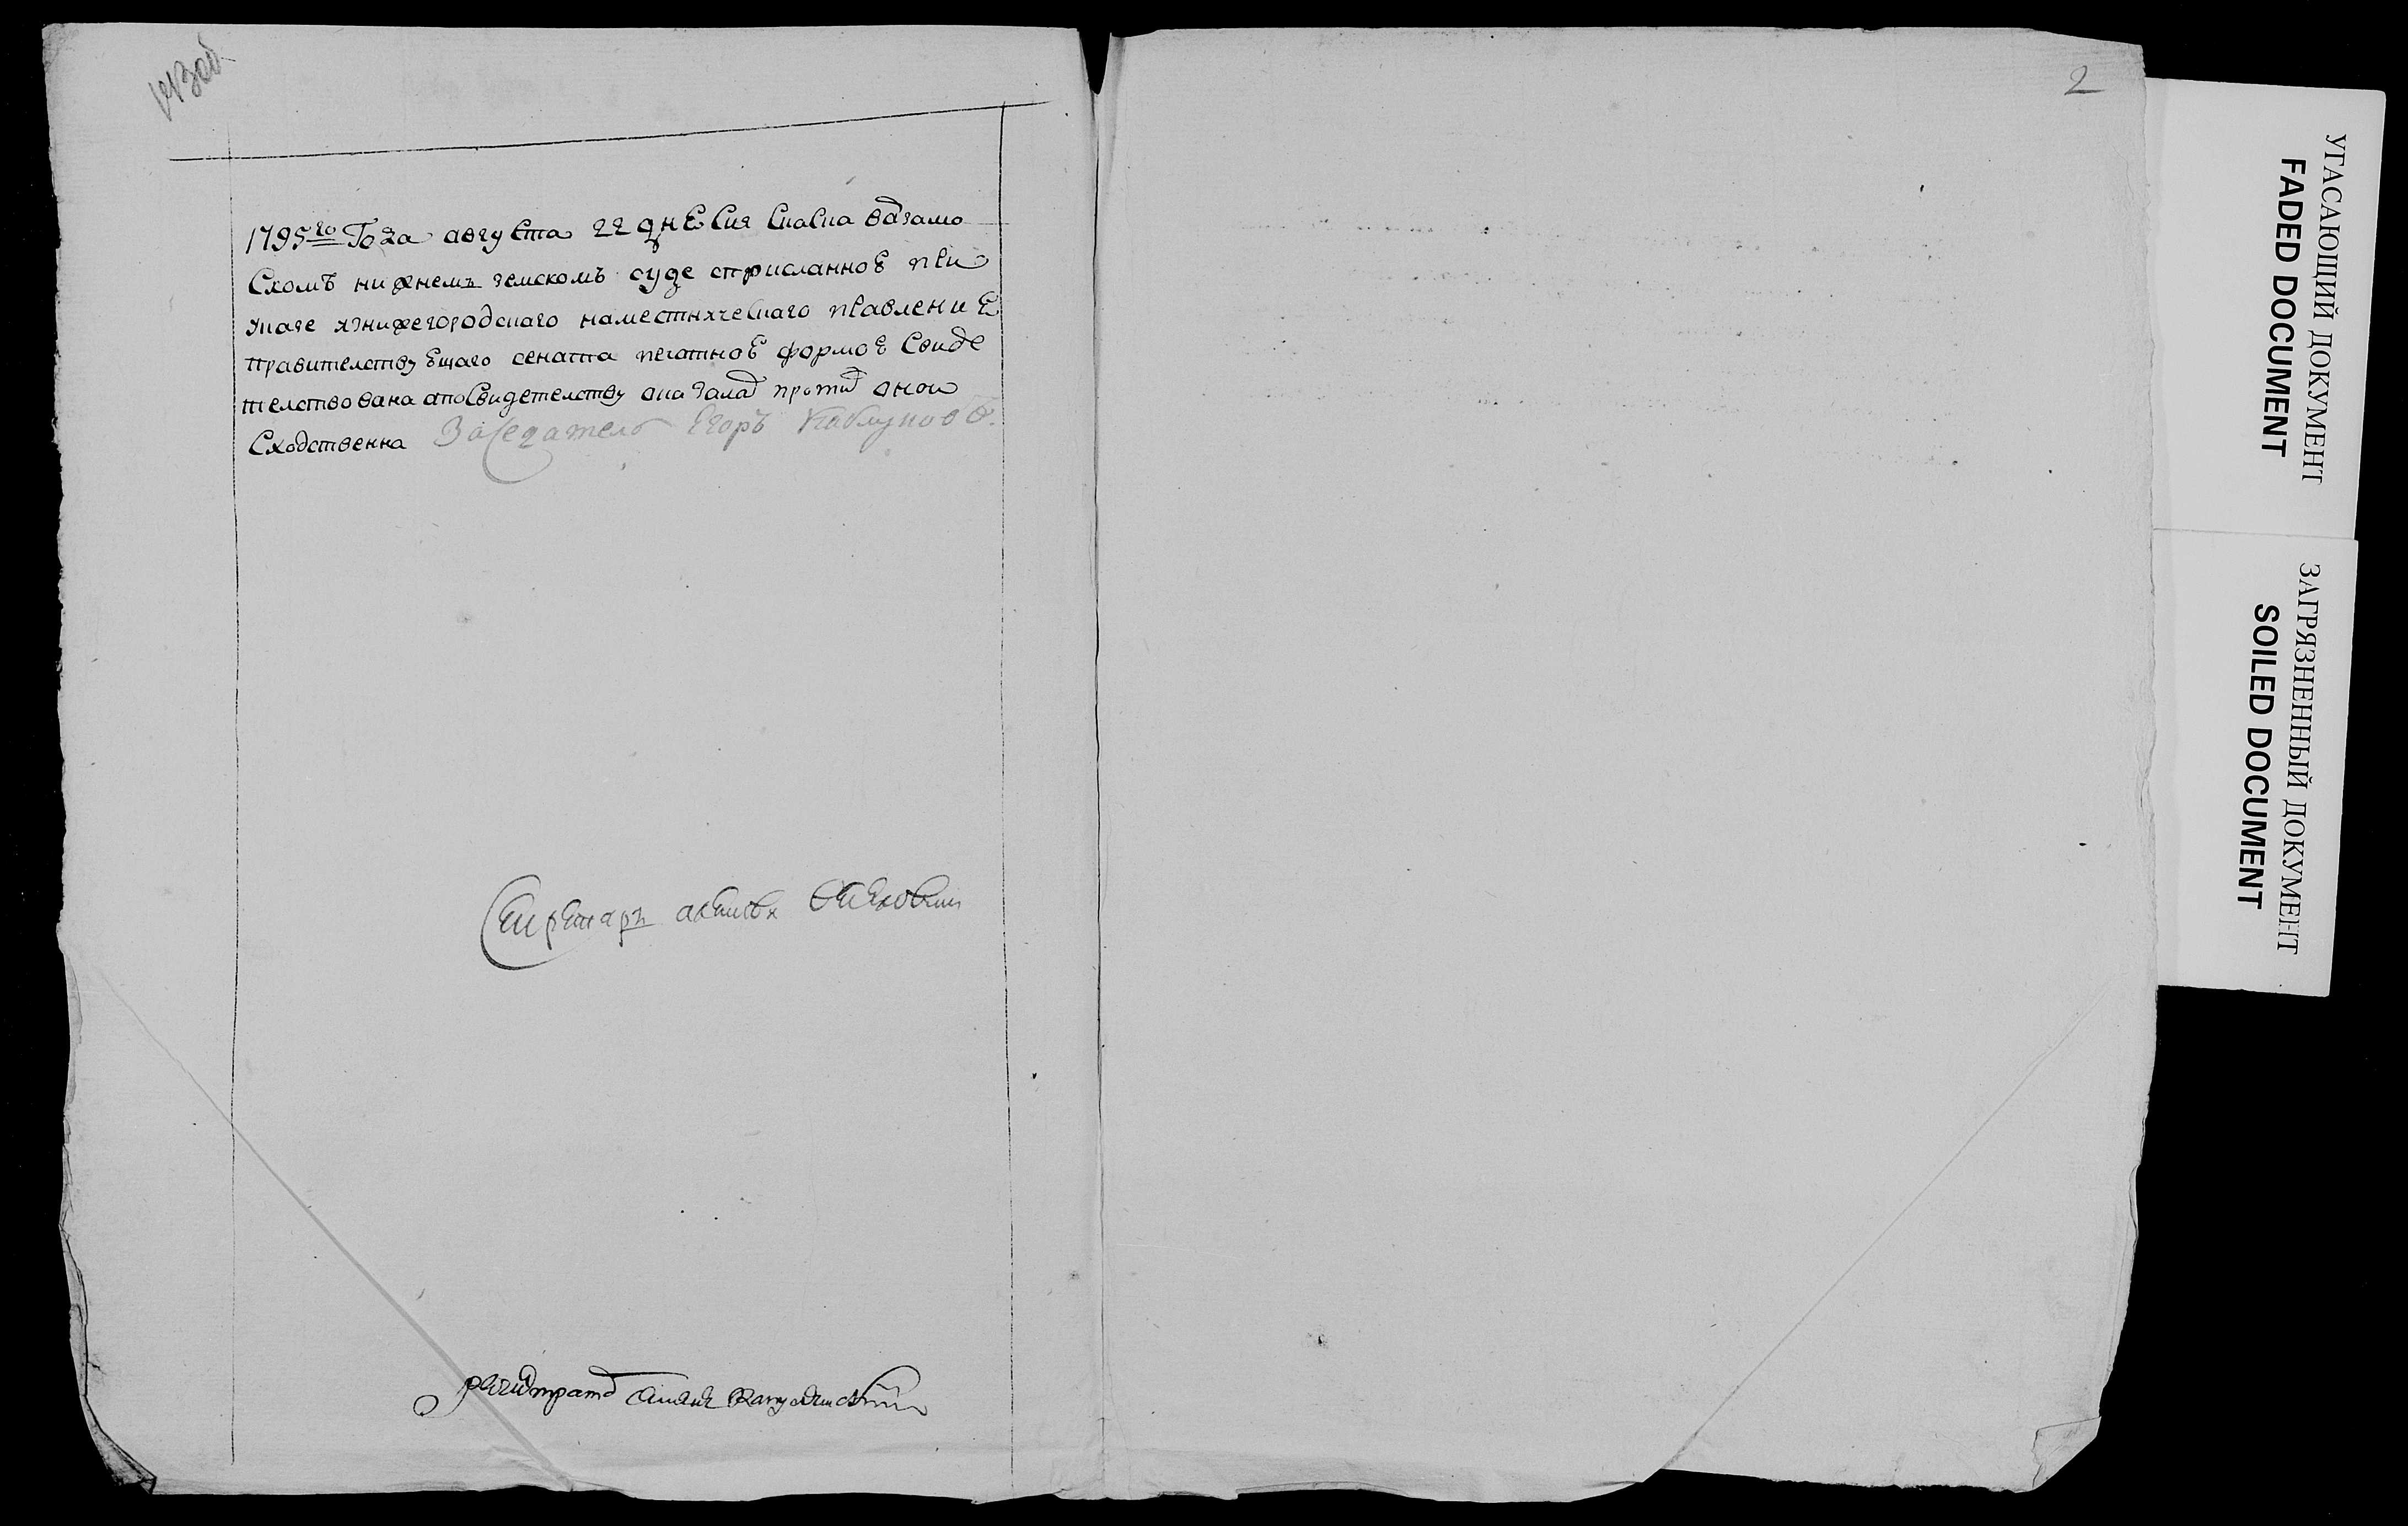 2
1795го Года августа 22 дня Сия Сказка варзамо
Скомъ нижнемъ земскомъ суде сприсланною при
указе изнижегородскаго наместническаго правления
правителствующаго сената печатною формою Свиде
телствована апосвидетелству оказалас против оной
Сходственна Заседатель Егоръ Каблуковъ
Секретарь
регистратор
УГАСАЮЩИЙ ДОКУМЕНТ
FADED DOCUMENT
ЗАГРЯЗНЕННЫЙ ДОКУМЕНТ
SOILED DOCUMENT